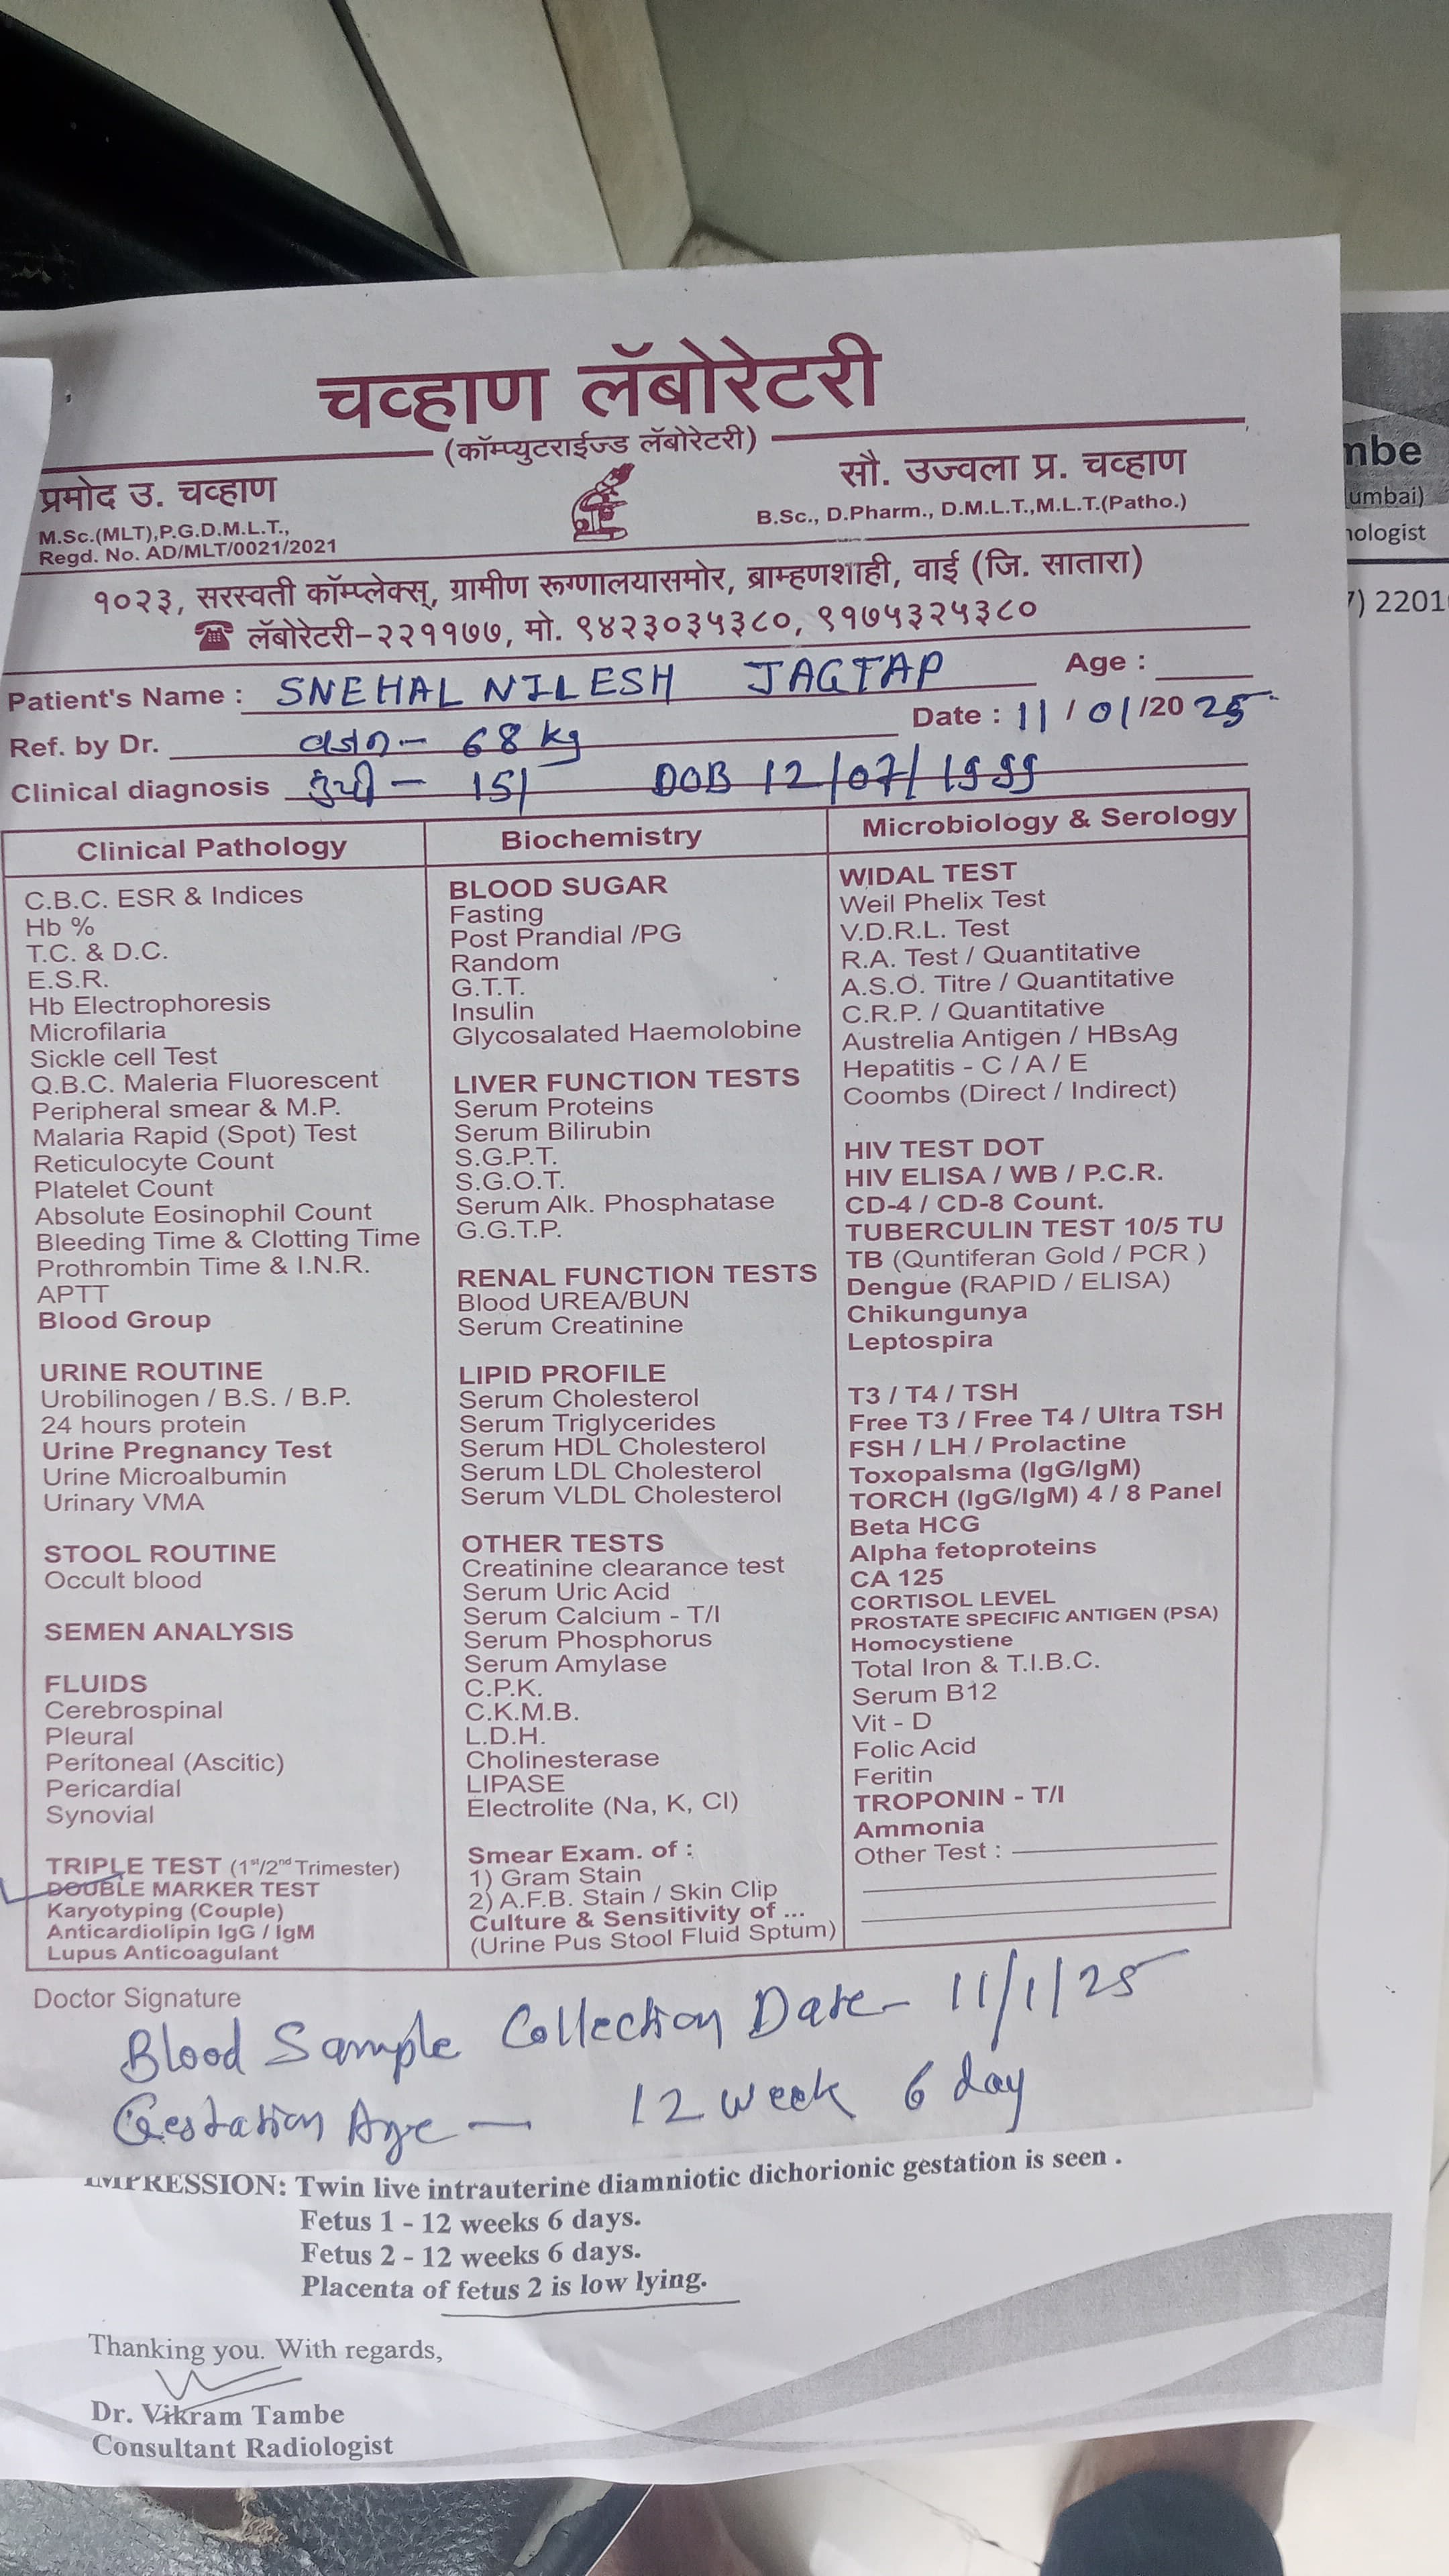 चव्हाण लॅबोरेटरी
(कॉम्प्युटराईज्ड लॅबोरेटरी)
प्रमोद उ. चव्हाण
M.Sc.(MLT),P.G.D.M.L.T.,
Regd. No. AD/MLT/0021/2021
सौ. उज्वला प्र. चव्हाण
B.Sc., D.Pharm., D.M.L.T.,M.L.T.(Patho.)
१०२३, सरस्वती कॉम्प्लेक्स्, ग्रामीण रूग्णालयासमोर, ब्राम्हणशाही, वाई (जि. सातारा)
लॅबोरेटरी-२२११७७, मो. ९४२३०३५३८०, ९१७५३२५३८०
Patient's Name : SNEHAL NILESH JAGTAP Age :
Ref. by Dr. वजन - 68 kg Date : 11 / 01 /20 25
Clinical diagnosis उंची - 151 DOB 12/07/1999
Clinical Pathology
C.B.C. ESR & Indices
Hb %
T.C. & D.C.
E.S.R.
Hb Electrophoresis
Microfilaria
Sickle cell Test
Q.B.C. Maleria Fluorescent
Peripheral smear & M.P.
Malaria Rapid (Spot) Test
Reticulocyte Count
Platelet Count
Absolute Eosinophil Count
Bleeding Time & Clotting Time
Prothrombin Time & I.N.R.
APTT
Blood Group
URINE ROUTINE
Urobilinogen / B.S. / B.P.
24 hours protein
Urine Pregnancy Test
Urine Microalbumin
Urinary VMA
STOOL ROUTINE
Occult blood
SEMEN ANALYSIS
FLUIDS
Cerebrospinal
Pleural
Peritoneal (Ascitic)
Pericardial
Synovial
TRIPLE TEST (1st/2nd Trimester)
DOUBLE MARKER TEST
Karyotyping (Couple)
Anticardiolipin IgG / IgM
Lupus Anticoagulant
Biochemistry
BLOOD SUGAR
Fasting
Post Prandial /PG
Random
G.T.T.
Insulin
Glycosalated Haemolobine
LIVER FUNCTION TESTS
Serum Proteins
Serum Bilirubin
S.G.P.T.
S.G.O.T.
Serum Alk. Phosphatase
G.G.T.P.
RENAL FUNCTION TESTS
Blood UREA/BUN
Serum Creatinine
LIPID PROFILE
Serum Cholesterol
Serum Triglycerides
Serum HDL Cholesterol
Serum LDL Cholesterol
Serum VLDL Cholesterol
OTHER TESTS
Creatinine clearance test
Serum Uric Acid
Serum Calcium - T/I
Serum Phosphorus
Serum Amylase
C.P.K.
C.K.M.B.
L.D.H.
Cholinesterase
LIPASE
Electrolite (Na, K, Cl)
Smear Exam. of :
1) Gram Stain
2) A.F.B. Stain / Skin Clip
Culture & Sensitivity of ...
(Urine Pus Stool Fluid Sptum)
Microbiology & Serology
WIDAL TEST
Weil Phelix Test
V.D.R.L. Test
R.A. Test / Quantitative
A.S.O. Titre / Quantitative
C.R.P. / Quantitative
Austrelia Antigen / HBsAg
Hepatitis - C / A / E
Coombs (Direct / Indirect)
HIV TEST DOT
HIV ELISA / WB / P.C.R.
CD-4 / CD-8 Count.
TUBERCULIN TEST 10/5 TU
TB (Quntiferan Gold / PCR )
Dengue (RAPID / ELISA)
Chikungunya
Leptospira
T3 / T4 / TSH
Free T3 / Free T4 / Ultra TSH
FSH / LH / Prolactine
Toxopalsma (IgG/IgM)
TORCH (IgG/IgM) 4 / 8 Panel
Beta HCG
Alpha fetoproteins
CA 125
CORTISOL LEVEL
PROSTATE SPECIFIC ANTIGEN (PSA)
Homocystiene
Total Iron & T.I.B.C.
Serum B12
Vit - D
Folic Acid
Feritin
TROPONIN - T/I
Ammonia
Other Test :
Doctor Signature
Blood Sample Collection Date - 11/1/25
Gestation Age - 12 week 6 day
IMPRESSION: Twin live intrauterine diamniotic dichorionic gestation is seen .
Fetus 1 - 12 weeks 6 days.
Fetus 2 - 12 weeks 6 days.
Placenta of fetus 2 is low lying.
Thanking you. With regards,
Dr. Vikram Tambe
Consultant Radiologist